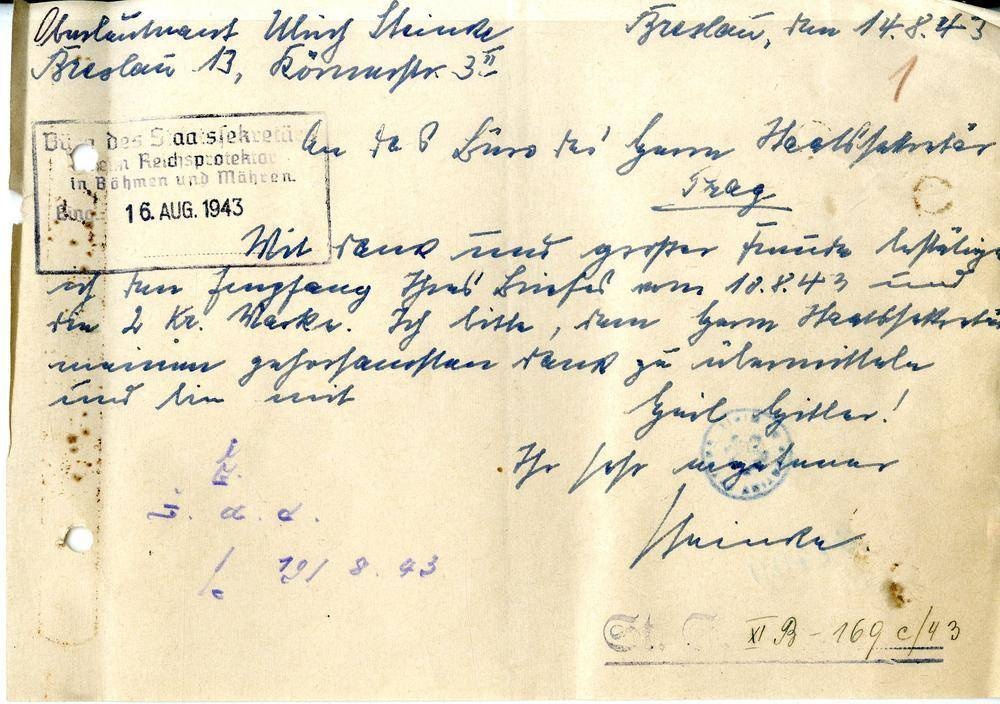 Oberleutnant Ulrich Steinke
Breslau, den 14.8.43
Breslau 13, Körnerstr. 3 II
1
Büro des Staatssekretärs
beim Reichsprotektor
in Böhmen und Mähren.
Eing.: 16. AUG. 1943
An das Büro des Herrn Staatssekretär
Prag
Mit Dank und großer Freude bestätige
ich den Empfang Ihres Briefes vom 10.8.43 und
die 2 Kr. Marke. Ich bitte, dem Herrn Staatssekretär
meinen gehorsamsten Dank zu übermitteln
und bin mit
Heil Hitler!
Ihr sehr ergebener
Steinke.
z. d. A.
19/ 8. 43
St. S. XI B - 169 c/43